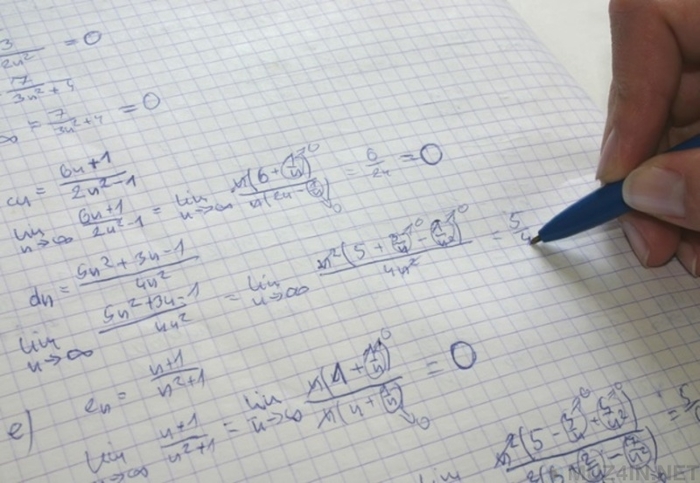 3/2n² = 0
7/3n²+4
∞ = 7/3n²+4 = 0
cn = 6n+1/2n²-1
lim n→∞ 6n+1/2n²-1 = lim n→∞ n(6+(1/n)→0)/n(2n-(1/n)→0) = 6/2n = 0
dn = 5n²+3n-1/4n²
lim n→∞ 5n²+3n-1/4n² = lim n→∞ n²(5+(3/n)→0-(1/n²)→0)/4n² = 5/4
e) en = n+1/n²+1
lim n→∞ n+1/n²+1 = lim n→∞ n(1+(1/n)→0)/n(n+(1/n)→0) = 0
lim
MUZ4IN.NET